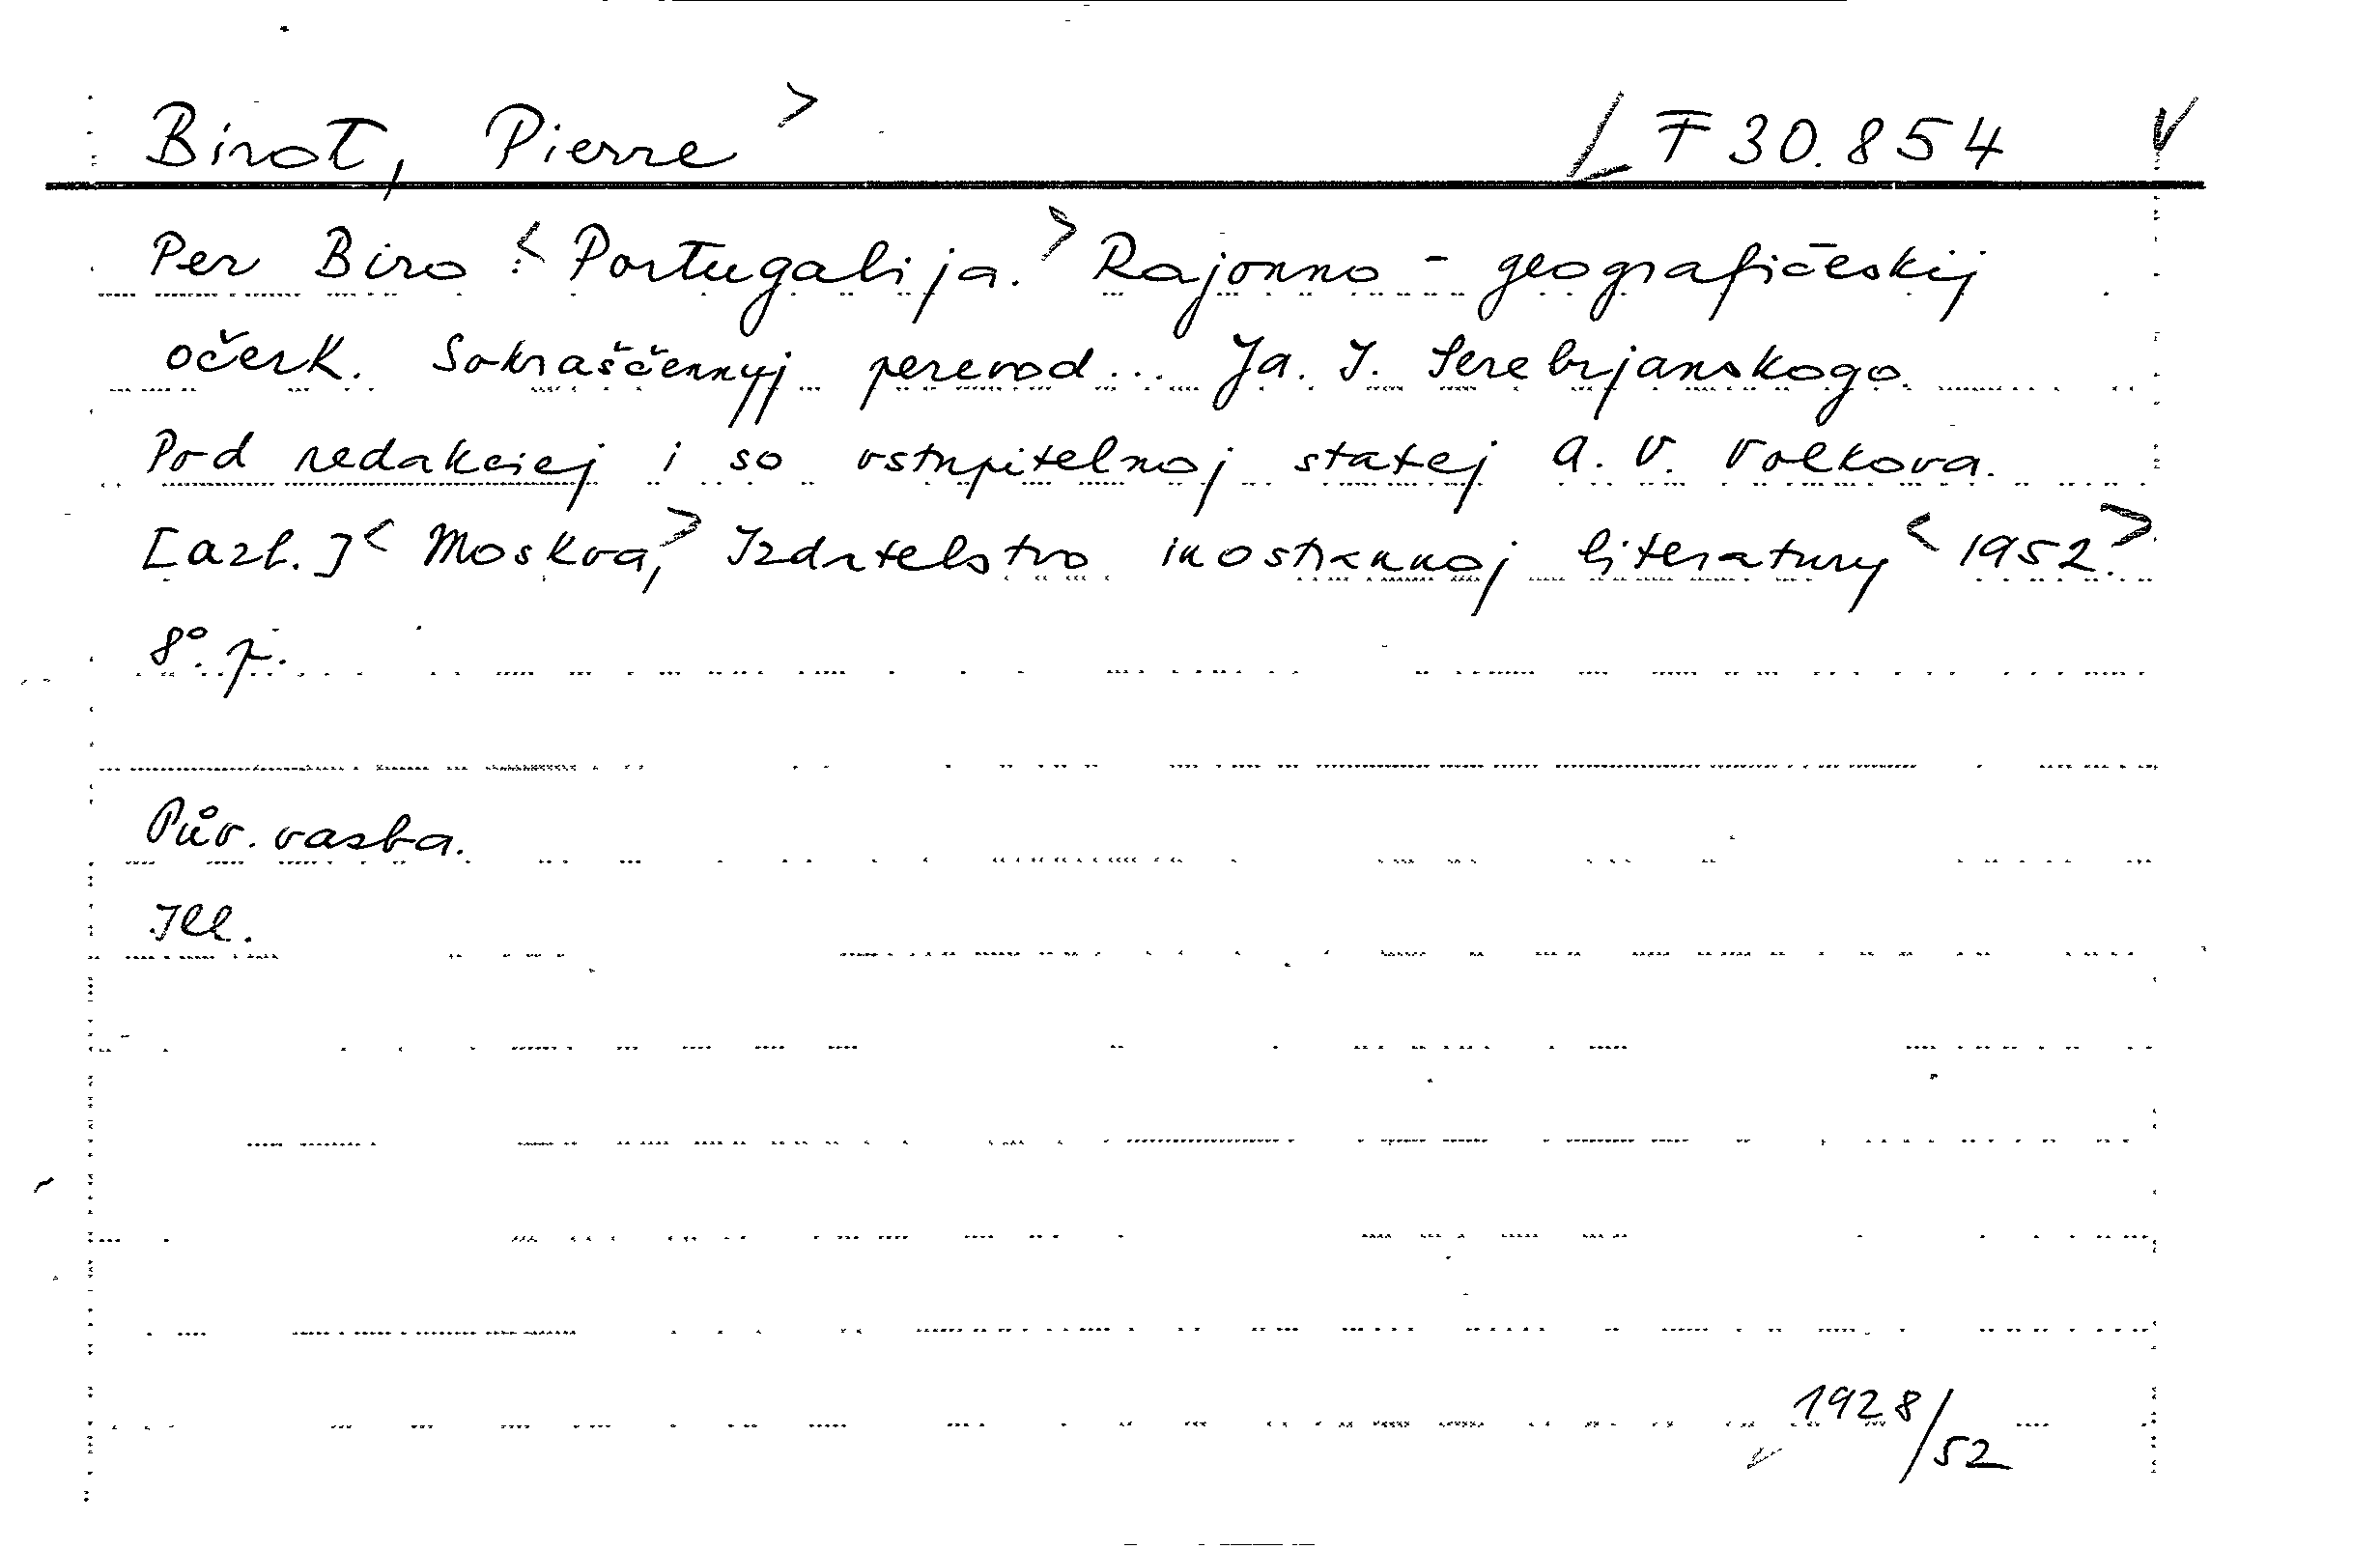 Birot, Pierre > F 30.854
Per Biro <: Portugalija.> Rajonno - geografičeskij
očerk. Sokraščennyj perevod... Ja. I. Serebrjanskogo.
Pod redakciej i so vstupitelnoj statej A. V. Volkova.
[azb.] < Moskva,> Izdatelstvo inostrannoj literatury < 1952.>
8°. p.
Pův. vazba.
Ill.
1928/52